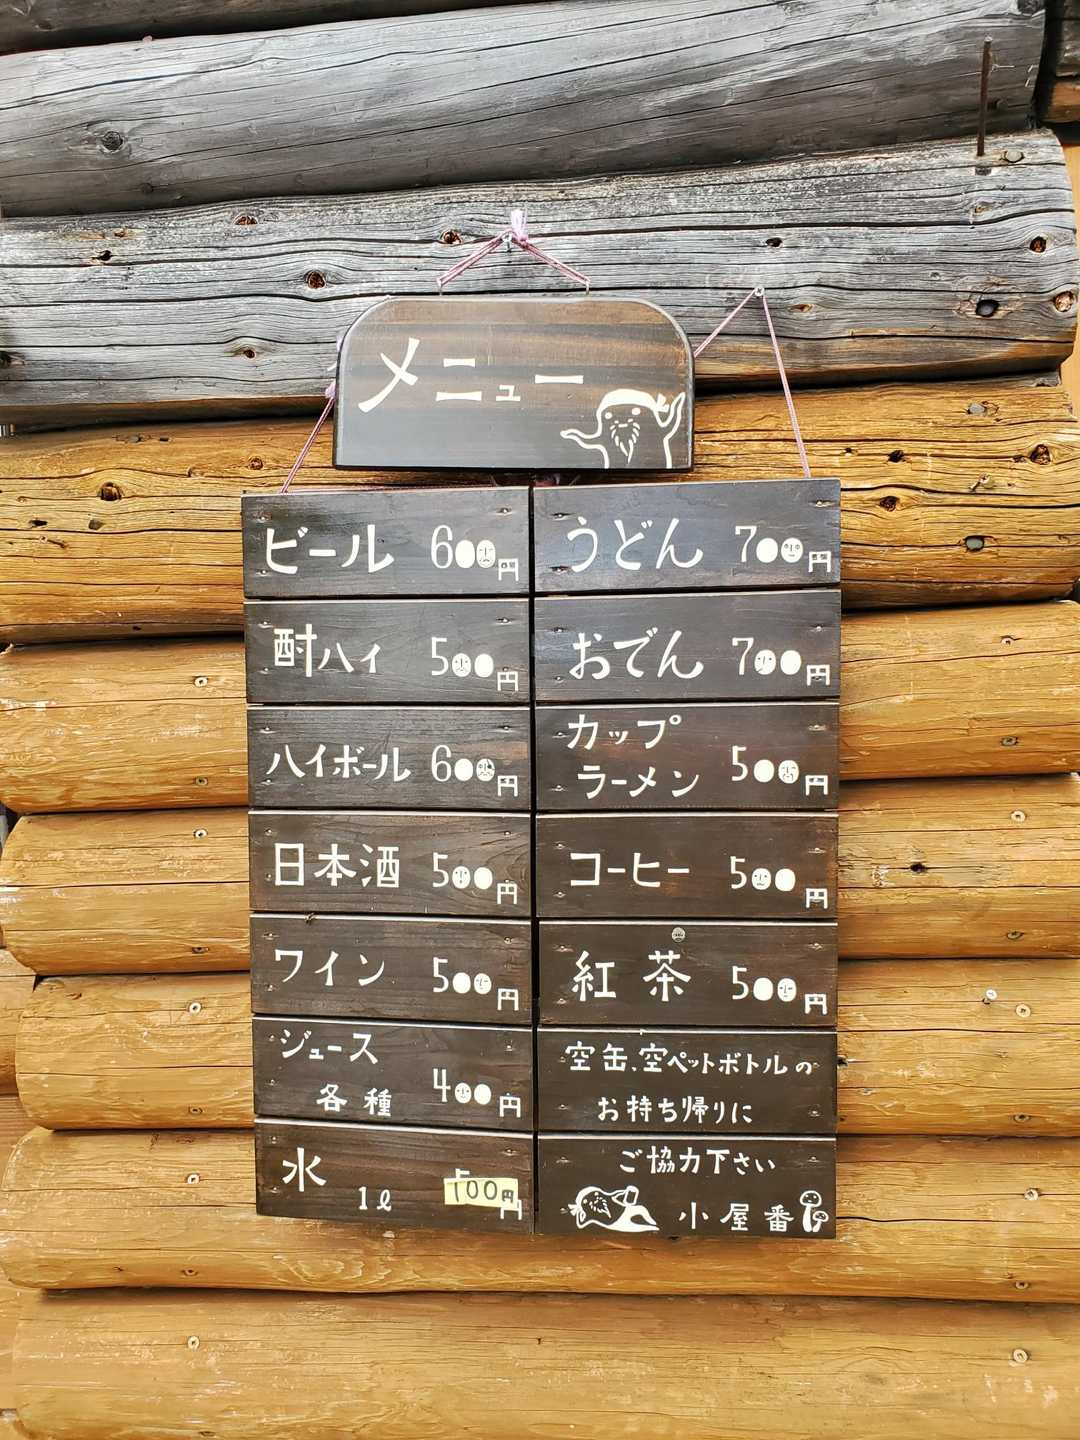 メニュー
ビール 600円
酎ハイ 500円
ハイボール 600円
日本酒 500円
ワイン 500円
ジュース
各種 400円
水
1ℓ 100円
うどん 700円
おでん 700円
カップ
ラーメン 500円
コーヒー 500円
紅茶 500円
空缶、空ペットボトルの
お持ち帰りに
ご協力下さい
小屋番